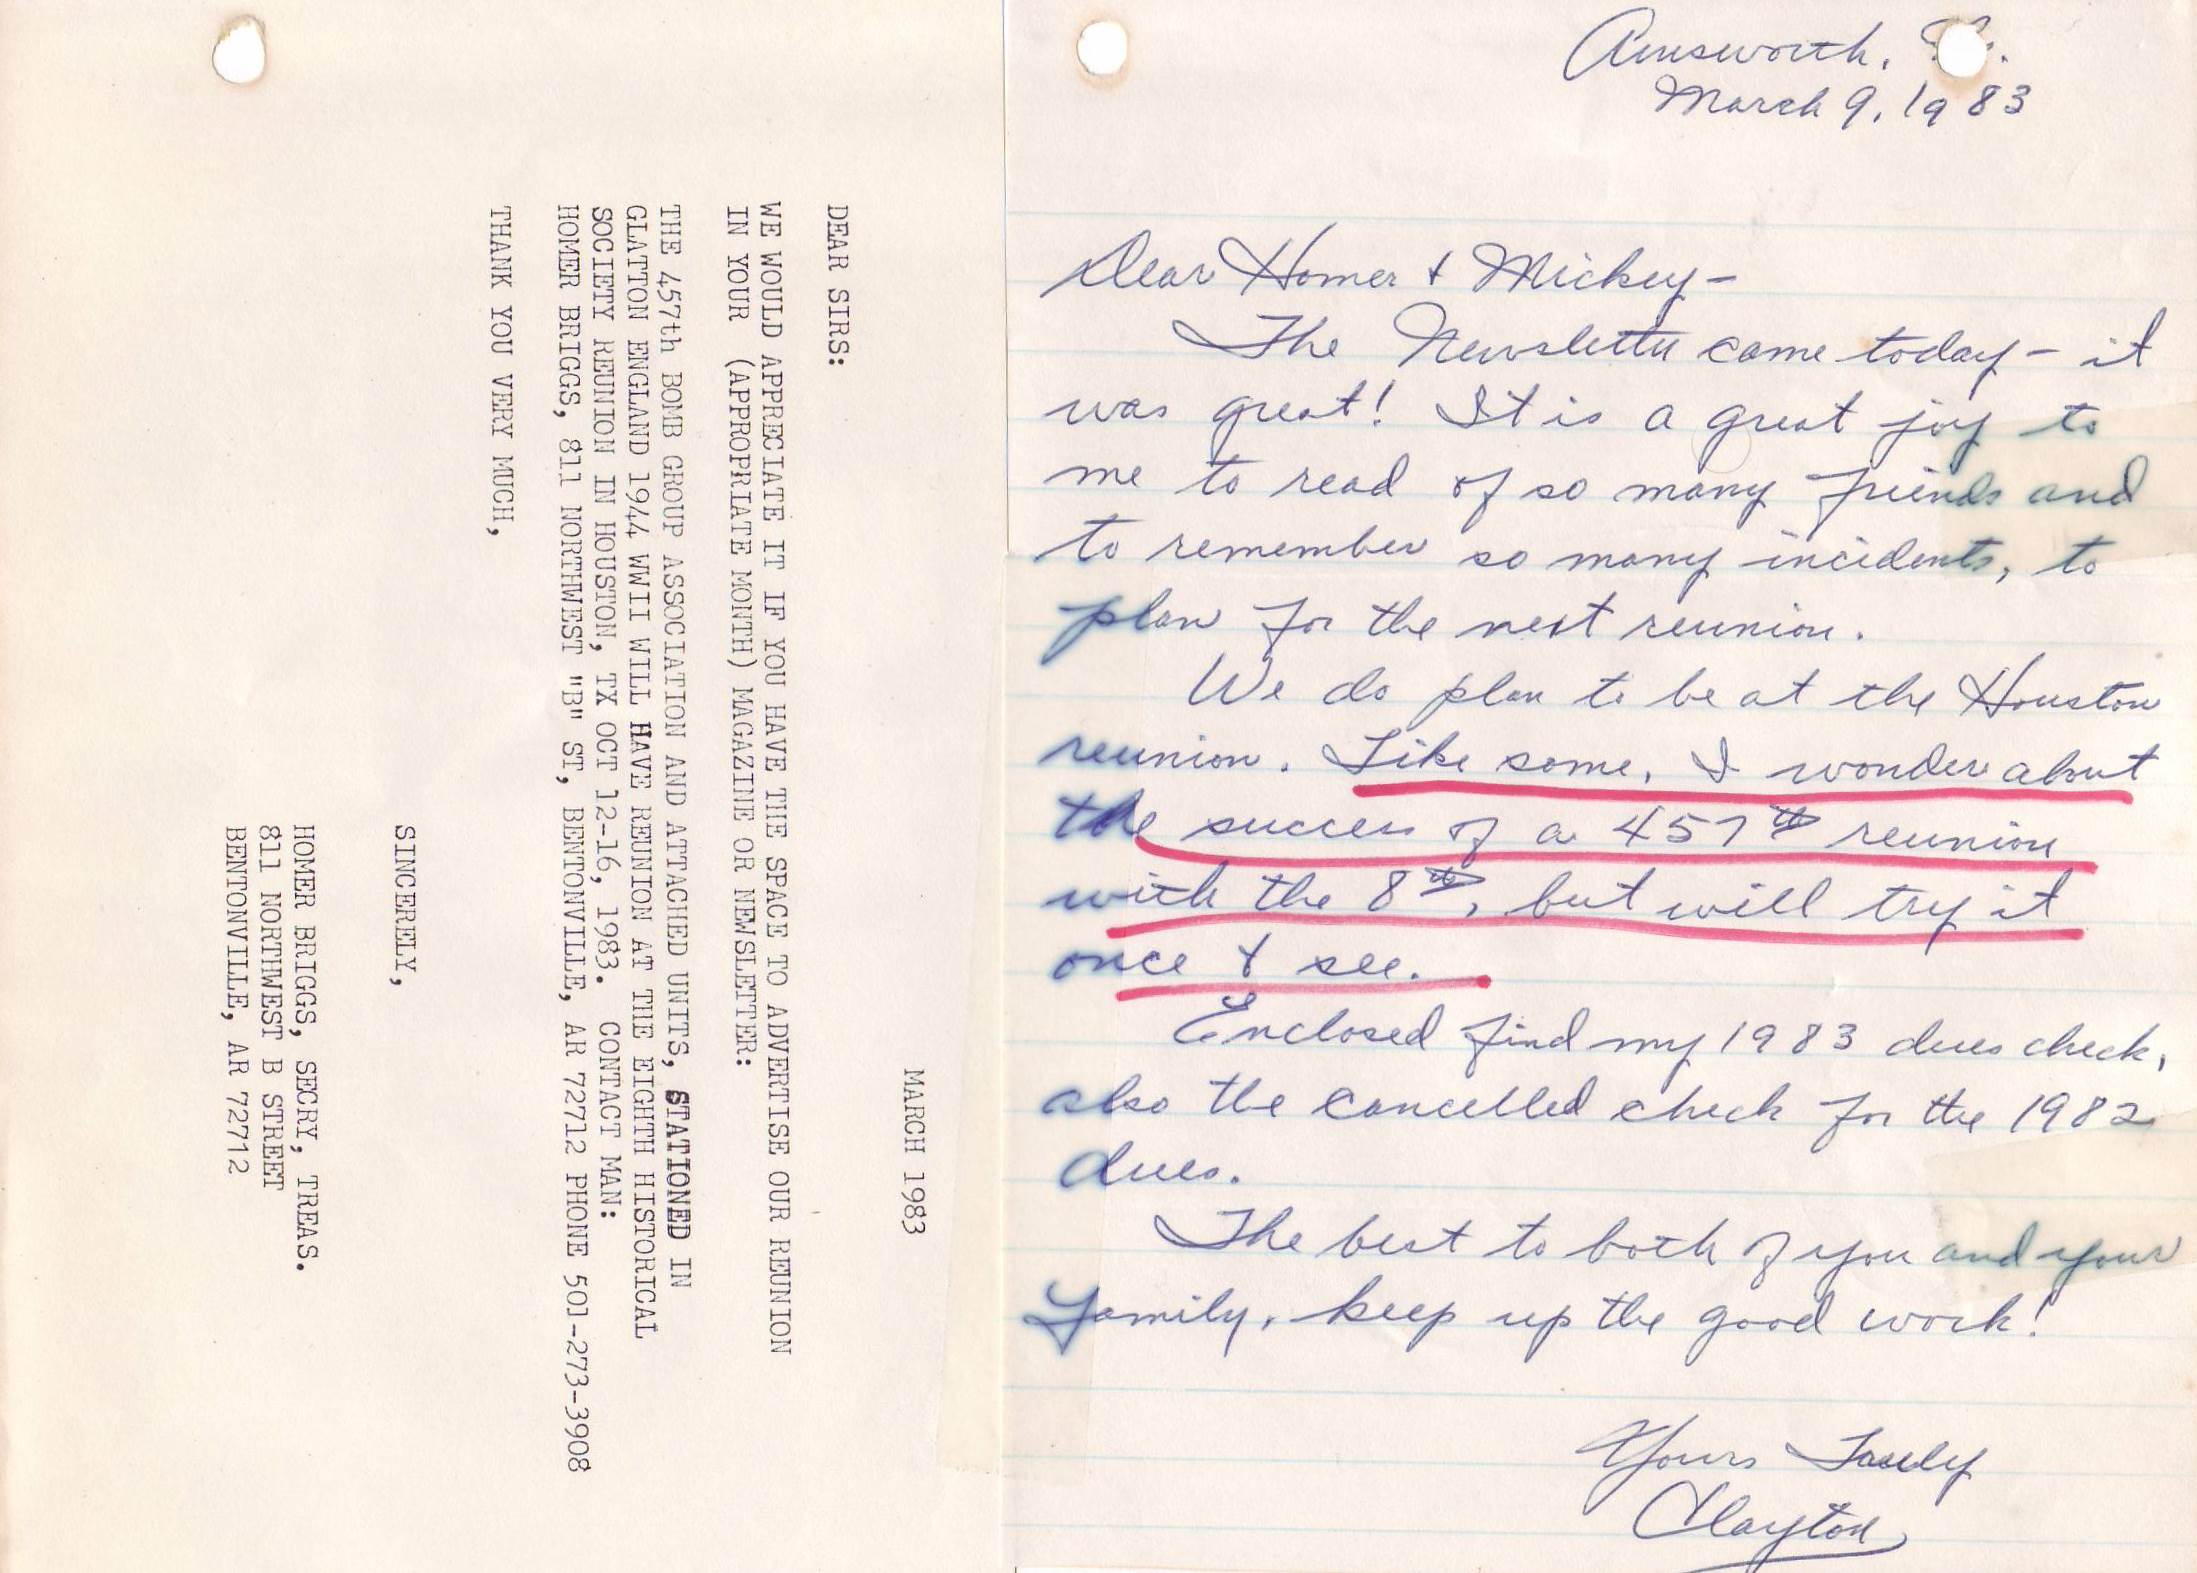 MARCH 1983
DEAR SIRS:
WE WOULD APPRECIATE IT IF YOU HAVE THE SPACE TO ADVERTISE OUR REUNION
IN YOUR (APPROPRIATE MONTH) MAGAZINE OR NEWSLETTER:
THE 457th BOMB GROUP ASSOCIATION AND ATTACHED UNITS, STATIONED IN
GLATTON ENGLAND 1944 WWII WILL HAVE REUNION AT THE EIGHTH HISTORICAL
SOCIETY REUNION IN HOUSTON, TX OCT 12-16, 1983. CONTACT MAN:
HOMER BRIGGS, 811 NORTHWEST "B" ST, BENTONVILLE, AR 72712 PHONE 501-273-3908
THANK YOU VERY MUCH,
SINCERELY,
HOMER BRIGGS, SECRY, TREAS.
811 NORTHWEST B STREET
BENTONVILLE, AR 72712
Ainsworth,
March 9, 1983
Dear Homer & Mickey-
The Newsletter came today - it
was great! It is a great joy to
me to read of so many friends and
to remember so many incidents, to
plan for the next reunion.
We do plan to be at the Houston
reunion. Like some, I wonder about
the success of a 457th reunion
with the 8th, but will try it
once & see.
Enclosed find my 1983 dues check,
also the cancelled check for the 1982
dues.
The best to both of you and your
family, keep up the good work!
Yours Truly
Clayton